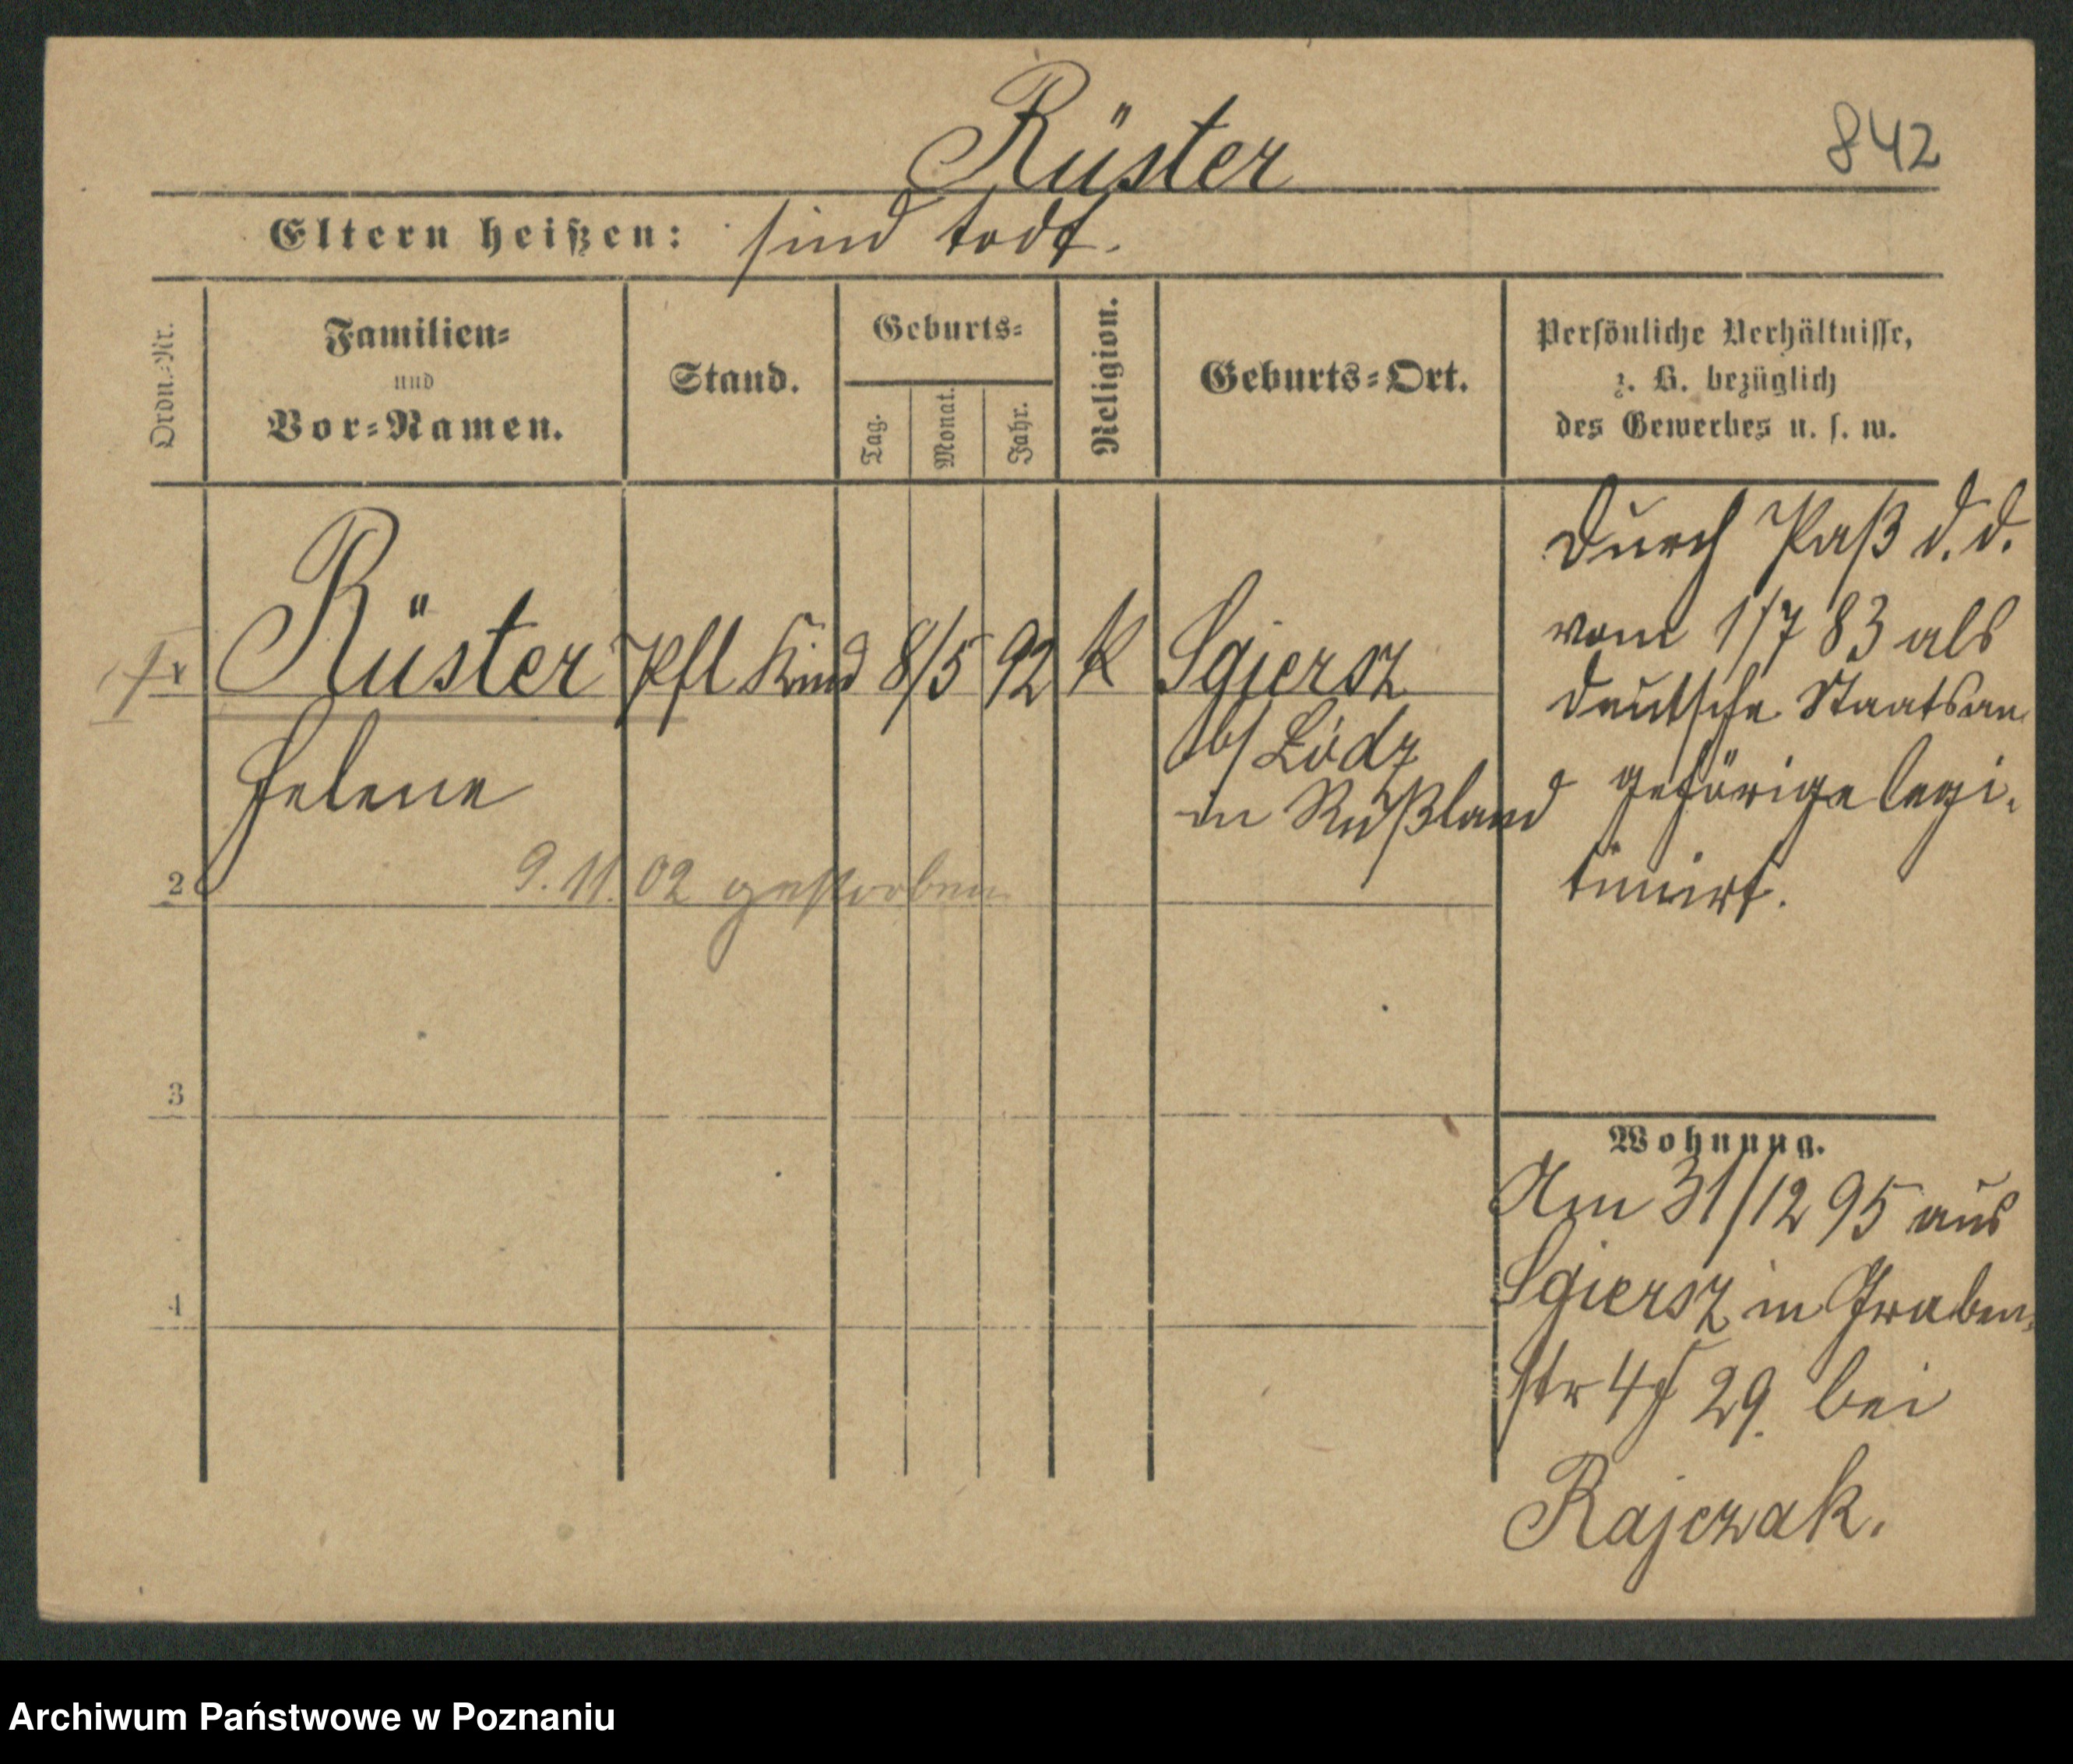 Rüster
842
Eltern heißen: sind todt.
Ordn.-Nr.
Familien-
und
Vor-Namen.
Stand.
Geburts-
Tag.
Monat.
Jahr.
Religion.
Geburts-Ort.
Persönliche Verhältnisse,
z. B. bezüglich
des Gewerbes u. s. w.
Rüster Pfl Kind 8/5 92 K Sgiersz
Helene
b/ Lódz
in Rußland
2
9.11.02 gestorben
Durch Paß d. d.
vom 1/7 83 als
deutsche Staatsan
gehörige legi-
timirt.
3
4
Wohnung.
Am 31/12 95 aus
Sgiersz in Graben-
str 29. bei
Rajczak.
Archiwum Państwowe w Poznaniu